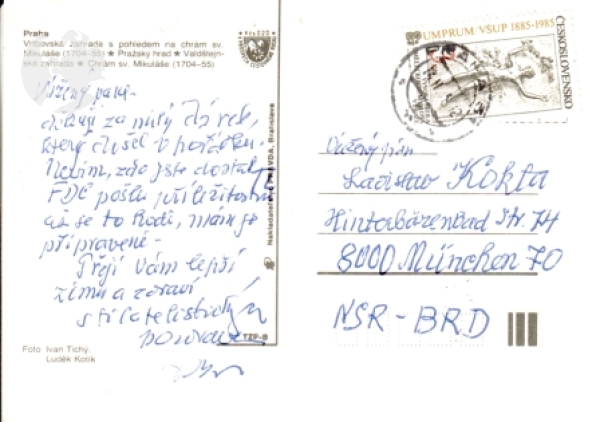 Praha
Vrtbovská zahrada s pohledem na chrám sv.
Mikuláše (1704–55) ★ Pražský hrad ★ Valdštejn-
ská zahrada ★ Chrám sv. Mikuláše (1704–55)
Kčs 0,20
Vážený pane
děkuji za milý dárek,
který došel v pořádku.
Nevím, zda jste dostal
FDC pošlu příležitostně
až se to hodí, mám je
připravené -
Přeji Vám lepší
zimu a zdraví
s filatelistickým
pozdravem
Foto Ivan Tichý,
Luděk Kotík
Nakladatelstvo PRAVDA, Bratislava
TZP-8
UMPRUM/VŠUP 1885-1985
ČESKOSLOVENSKO
Vážený pán
Ladislav Kokta
Hinterbärenbad Str. 74
8000 München 70
NSR - BRD